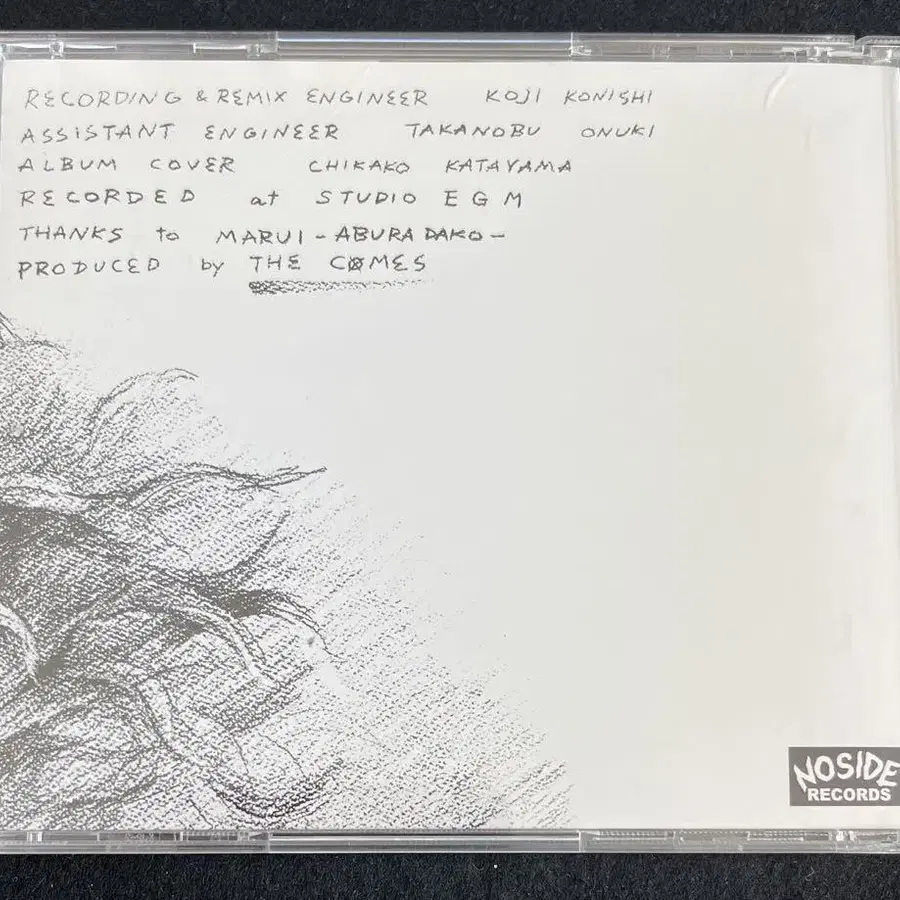 RECORDING & REMIX ENGINEER KOJI KONISHI
ASSISTANT ENGINEER TAKANOBU ONUKI
ALBUM COVER CHIKAKO KATAYAMA
RECORDED at STUDIO EGM
THANKS to MARUI - ABURA DAKO -
PRODUCED by THE CØMES
NOSIDE
RECORDS